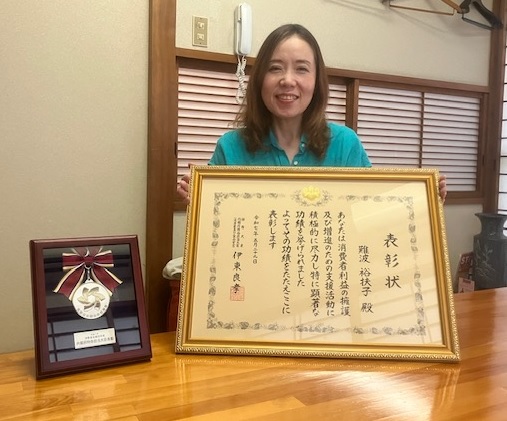 表彰状
難波 裕扶子 殿
あなたは消費者利益の擁護
及び増進のための支援活動に
積極的に尽力し特に顕著な
功績を挙げられました
よってその功績をたたえここに
表彰します
令和七年五月二十九日
伊東良孝